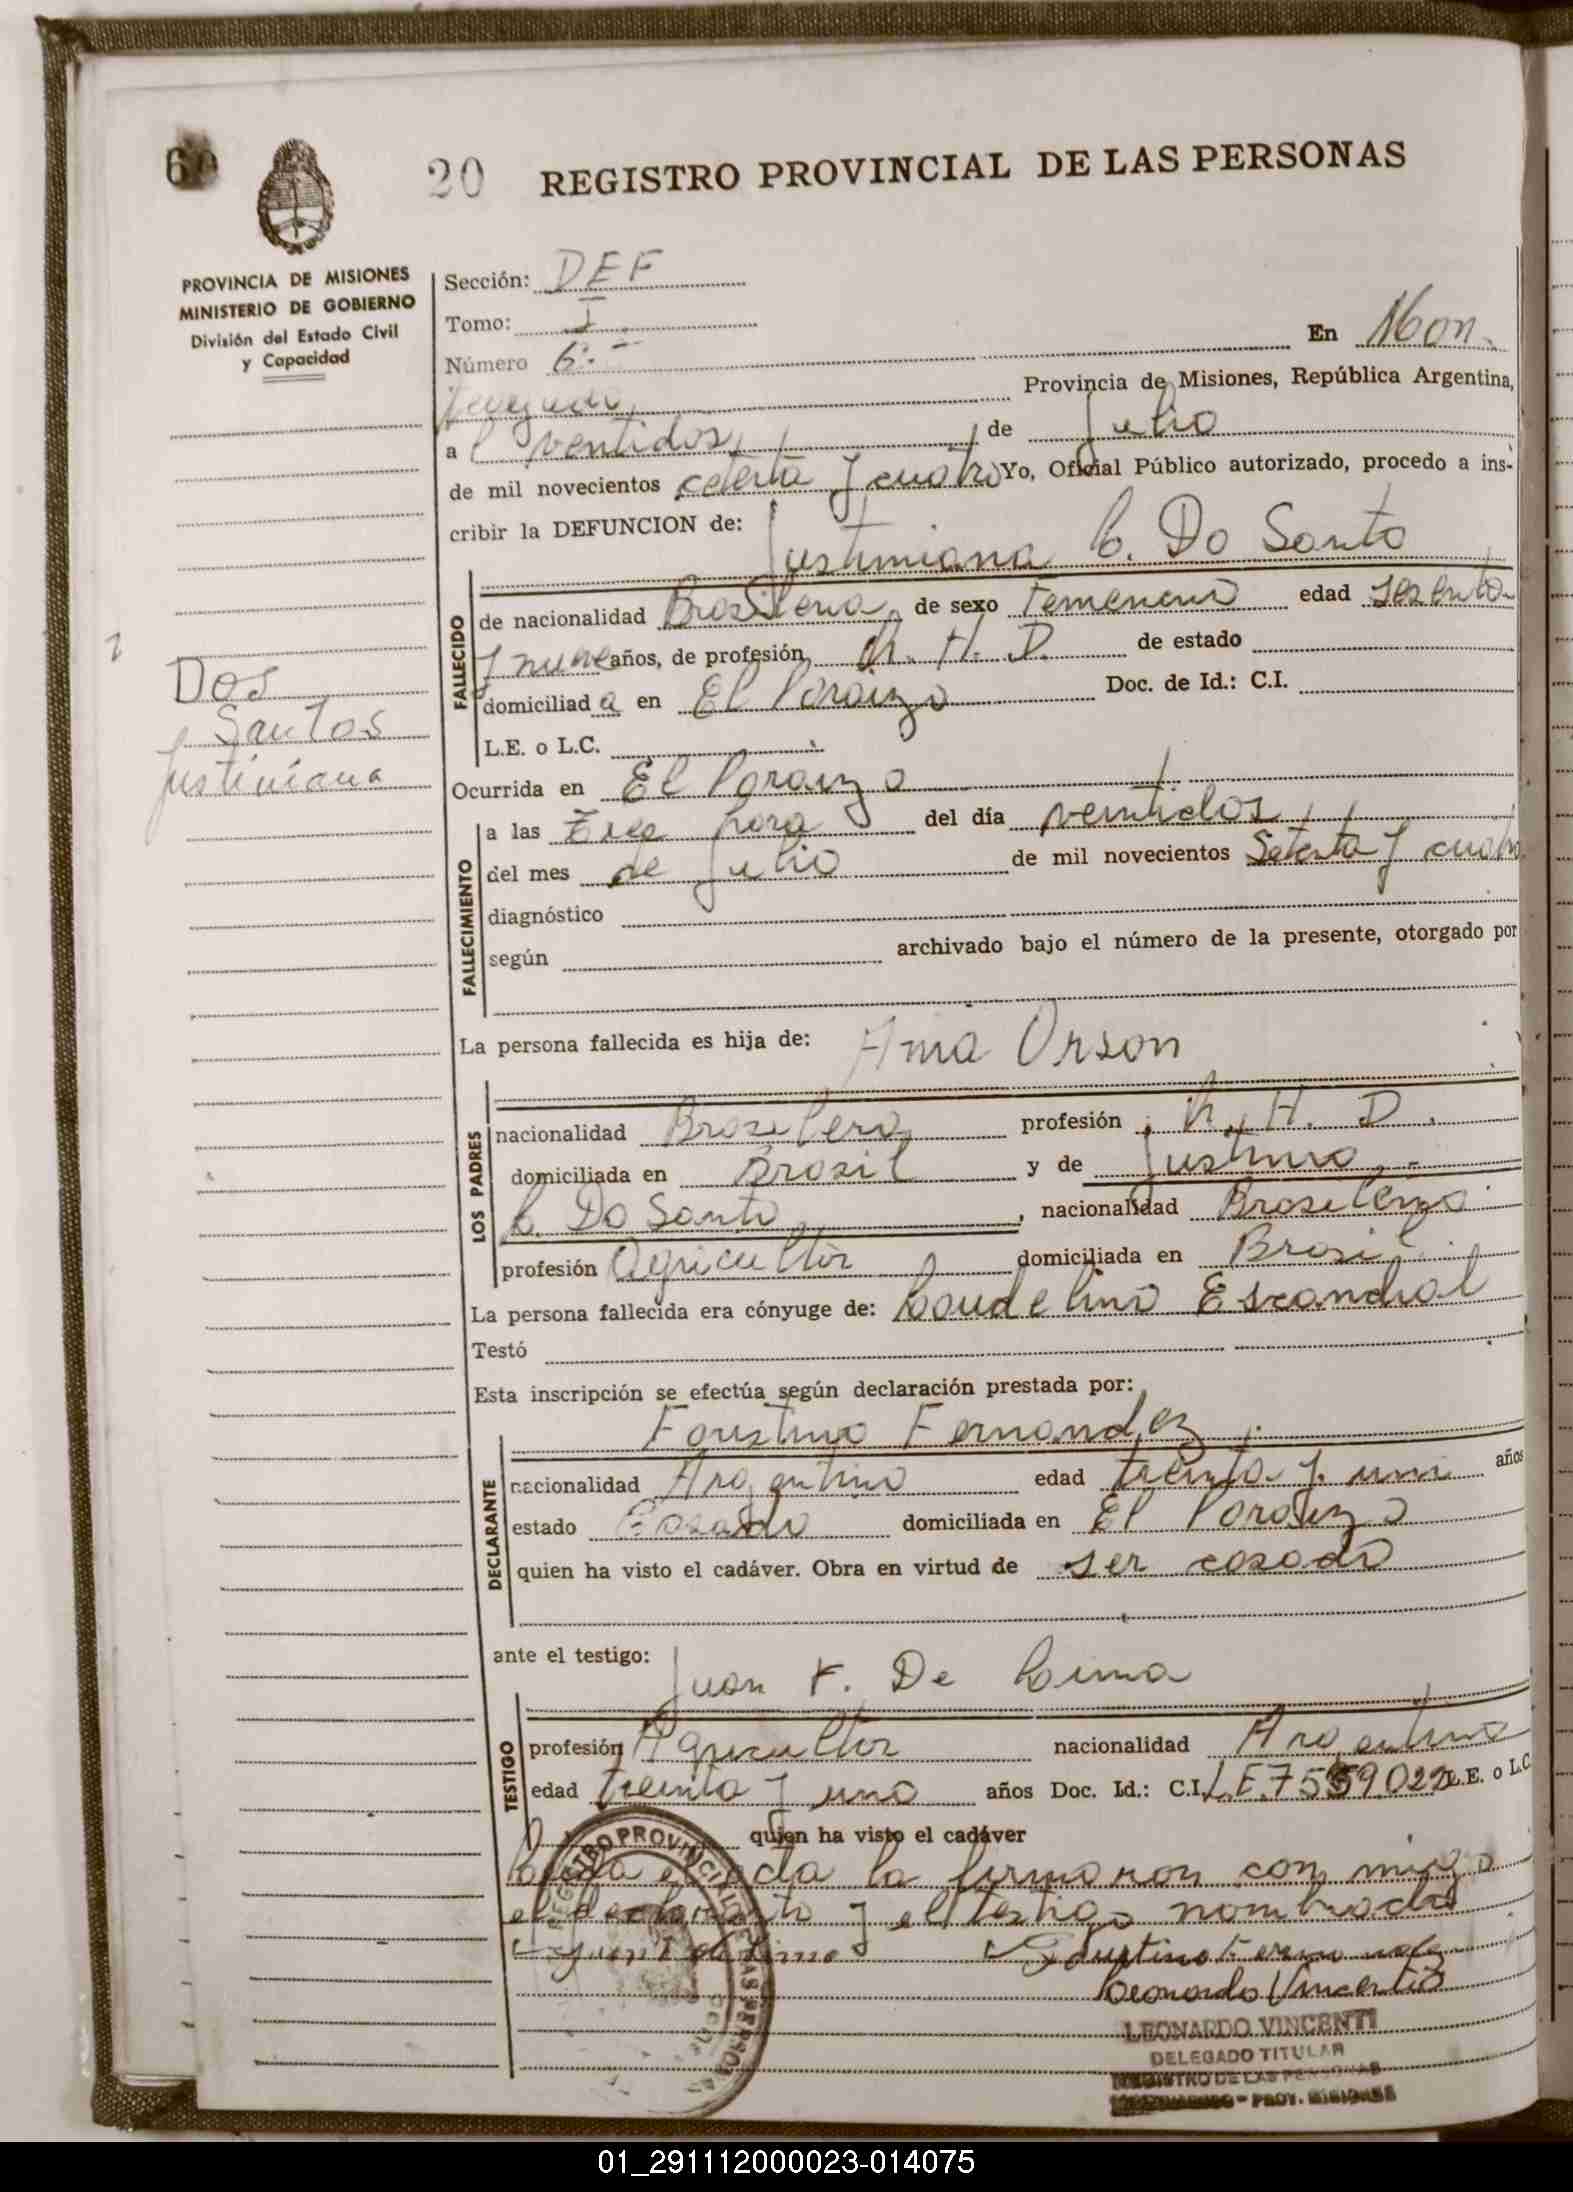 20 REGISTRO PROVINCIAL DE LAS PERSONAS
PROVINCIA DE MISIONES
MINISTERIO DE GOBIERNO
División del Estado Civil
y Capacidad
Sección: DEF
Tomo: I
Número 6.-
En Mon
Provincia de Misiones, República Argentina,
a ventidos, de Julio
de mil novecientos cetenta y cuatro Yo, Oficial Público autorizado, procedo a ins-
cribir la DEFUNCION de: Justiniana C. Do Santo
FALLECIDO
de nacionalidad Brasilera, de sexo Femenino edad sesenta
y nueve años, de profesión H. D. de estado
domiciliada en El Paraizo Doc. de Id.: C.I.
L.E. o L.C.
Dos
Santos
Justiniana
Ocurrida en El Paraizo
FALLECIMIENTO
a las hora del día ventidos
del mes de Julio de mil novecientos Setenta y cuatro
diagnóstico
según archivado bajo el número de la presente, otorgado por
La persona fallecida es hija de: Ana Orson
LOS PADRES
nacionalidad Brasilera, profesión H. D.
domiciliada en Brasil y de Justino,-
C. Do Santo, nacionalidad Brasilero
profesión Agricultor domiciliada en Brasil
La persona fallecida era cónyuge de: Escandial
Testó
Esta inscripción se efectúa según declaración prestada por:
Faustino Fernandez
DECLARANTE
nacionalidad Argentino edad treinta y uno años
estado Casado domiciliada en El Paraizo
quien ha visto el cadáver. Obra en virtud de ser casado
ante el testigo: Juan F. De Lima
TESTIGO
profesión Agricultor nacionalidad Argentino
edad treinta y uno años Doc. Id.: C.I. L.E. 7559.022 L.E. o L.C
quien ha visto el cadáver
Leida el acta la firmaron con migo
el declarante y el testigo nombrado
Juan F de Lima Faustino Fernandez
Leonardo Vincenti
REGISTRO PROVINCIAL DE LAS PERSONAS
LEONARDO VINCENTI
DELEGADO TITULAR
REGISTRO DE LAS PERSONAS
PROV. MISIONES
01_291112000023-014075